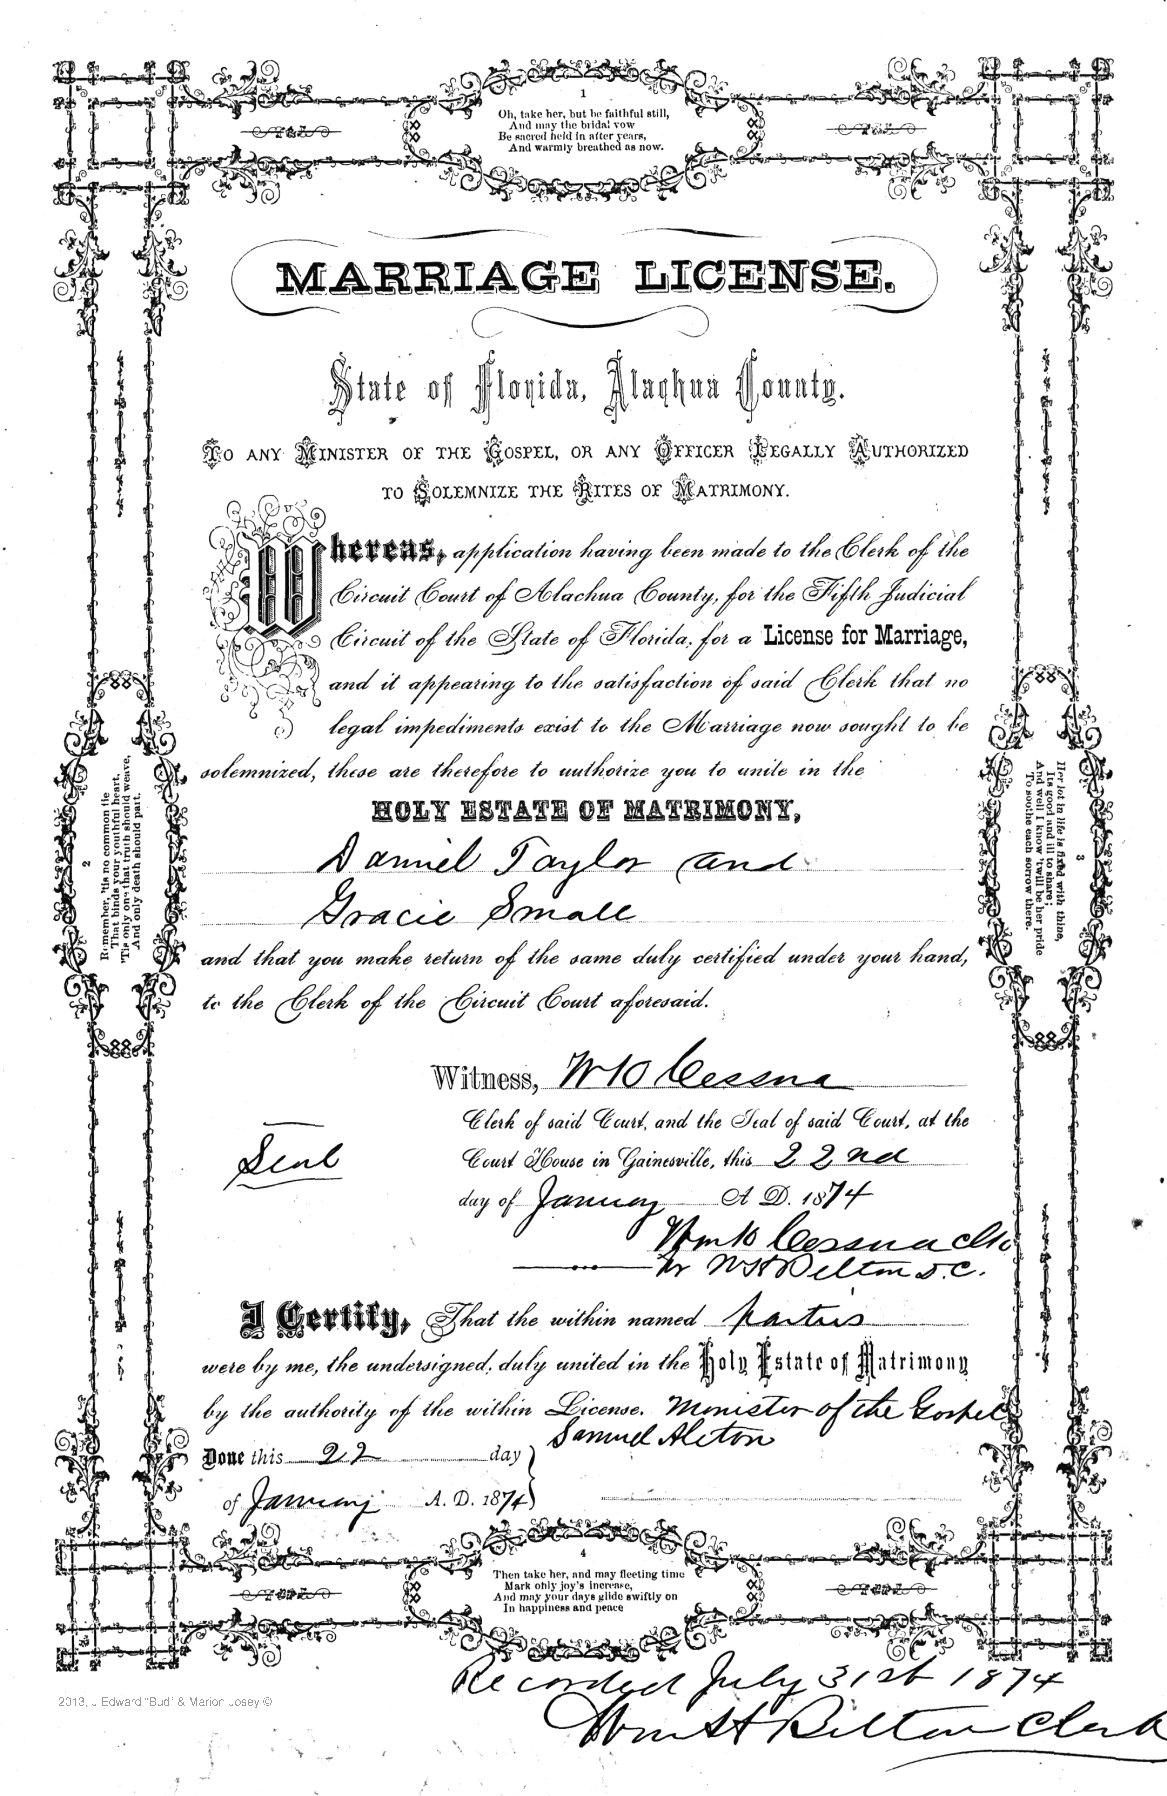 1
Oh, take her, but be faithful still,
And may the bridal vow
Be sacred held in after years,
And warmly breathed as now.
MARRIAGE LICENSE.
State of Florida, Alachua County.
TO ANY MINISTER OF THE GOSPEL, OR ANY OFFICER LEGALLY AUTHORIZED
TO SOLEMNIZE THE RITES OF MATRIMONY.
Whereas, application having been made to the Clerk of the
Circuit Court of Alachua County, for the Fifth Judicial
Circuit of the State of Florida, for a License for Marriage,
and it appearing to the satisfaction of said Clerk that no
legal impediments exist to the Marriage now sought to be
solemnized, these are therefore to authorize you to unite in the
HOLY ESTATE OF MATRIMONY,
Daniel Taylor and
Gracie Small
and that you make return of the same duly certified under your hand,
to the Clerk of the Circuit Court aforesaid.
2
Remember, 'tis no common tie
That binds your youthful heart,
'Tis only one that truth should weave,
And only death should part.
3
Her lot in life is fixed with thine,
Its good and ill to share;
And well I know 'twill be her pride
To soothe each sorrow there.
Witness, Wm K Cessna
Clerk of said Court, and the Seal of said Court, at the
Seal
Court House in Gainesville, this 22nd
day of January A D. 1874
Wm K Cessna Clk
Wm H Belton D.C.
I Certify, That the within named parties
were by me, the undersigned, duly united in the Holy Estate of Matrimony
by the authority of the within License. Minister of the Gospel
Samuel
Done this 22 day
of January A. D. 1874
4
Then take her, and may fleeting time
Mark only joy's increase,
And may your days glide swiftly on
In happiness and peace
Recorded July 31st 1874
Wm H Belton Clerk
2013, J. Edward "Bud" & Marion Josey ©